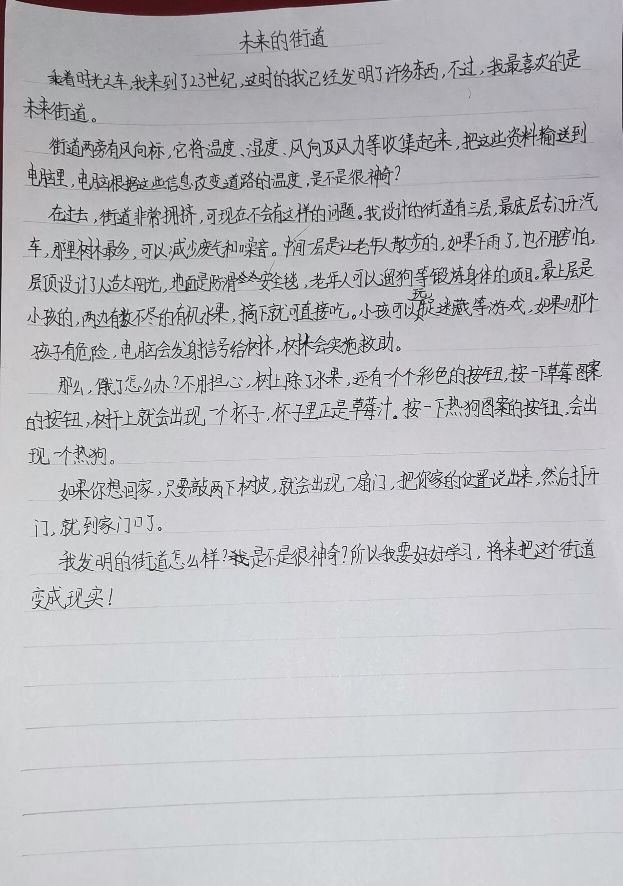 未来的街道
乘着时光之车,我来到了23世纪,这时的我已经发明了许多东西,不过,我最喜欢的是
未来街道。
街道两旁有风向标,它将温度、湿度、风向及风力等收集起来,把这些资料输送到
电脑里,电脑根据这些信息改变道路的温度,是不是很神奇?
在过去,街道非常拥挤,可现在不会有这样的问题。我设计的街道有三层,最底层专门开汽
车,那里树林最多,可以减少废气和噪音。中间一层是让老年人散步的,如果下雨了,也不用害怕,
层顶设计了人造太阳光,地面是防滑安全毯,老年人可以遛狗等锻炼身体的项目。最上层是
小孩的,两边有数不尽的有机水果,摘下就可直接吃。小孩可以玩捉迷藏等游戏,如果哪个
孩子有危险,电脑会发射信号给树林,树林会实施救助。
那么,饿了怎么办?不用担心,树上除了水果,还有一个个彩色的按钮,按一下草莓图案
的按钮,树杆上就会出现一个杯子,杯子里正是草莓汁。按一下热狗图案的按钮,会出
现一个热狗。
如果你想回家,只要敲两下树皮,就会出现一扇门,把你家的位置说出来,然后打开
门,就到家门口了。
我发明的街道怎么样?是不是很神奇?所以我要好好学习,将来把这个街道
变成现实!